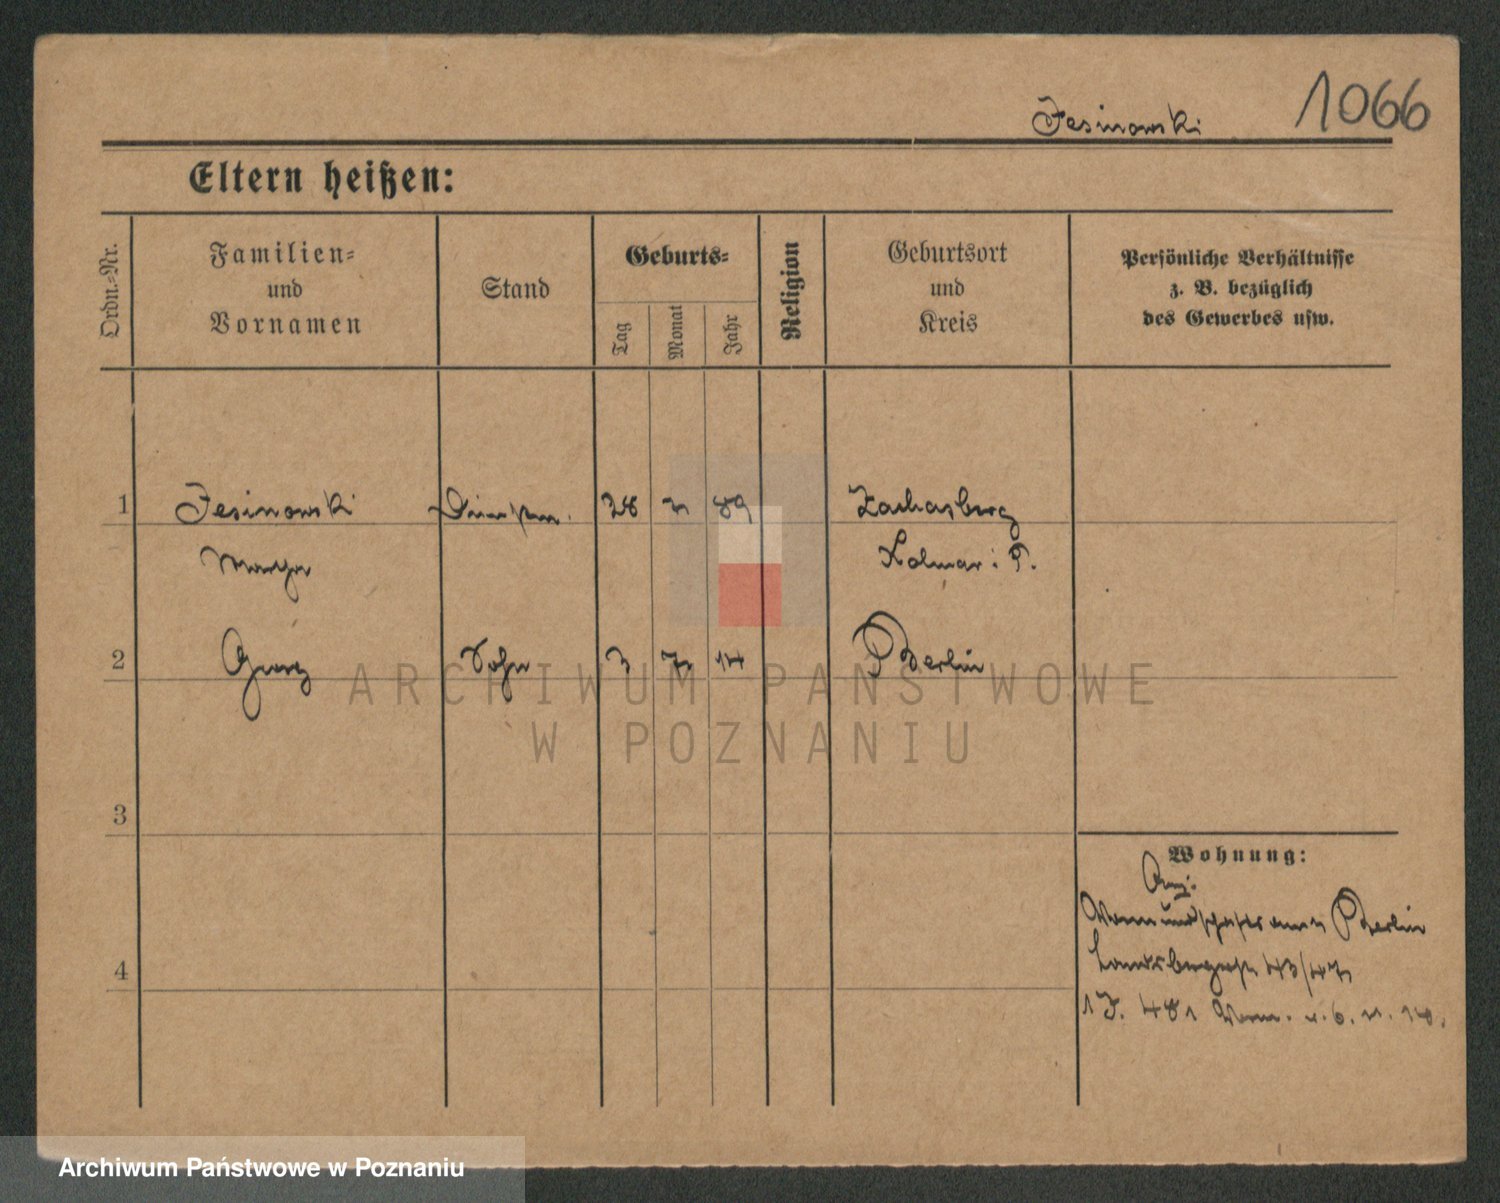 1066
Jesinowski
Eltern heißen:
Ordn.-Nr.
Familien-
und
Vornamen
Stand
Geburts-
Tag
Monat
Jahr
Religion
Geburtsort
und
Kreis
Persönliche Verhältnisse
z. B. bezüglich
des Gewerbes usw.
1 Jesinowski 28 89
Kolmar i. P.
2 Georg Sohn 3 14 Berlin
3
Wohnung:
Berlin
4
43/47
481
ARCHIWUM PAŃSTWOWE
W POZNANIU
Archiwum Państwowe w Poznaniu